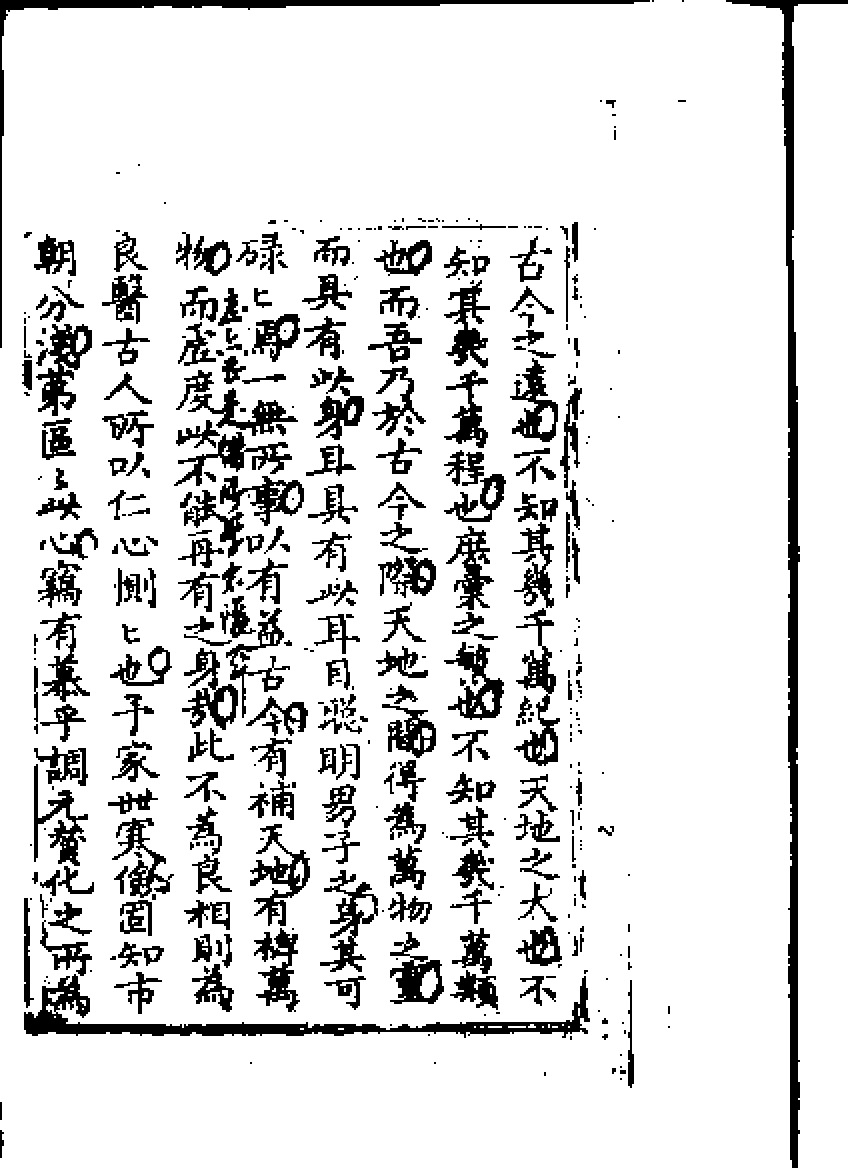 古今之遠也不知其幾千萬紀也天地之大也不
知其幾千萬程也庶彙之繁也不知其幾千萬類
也而吾乃於古今之際天地之間得為萬物之靈
而具有此身耳具有此耳目聰明男子之身其可
碌〻焉一無所事以有益古今有補天地有裨萬
物而虛度此不能再有之身哉此不為良相則為
良醫古人所以仁心惻〻也予家世寒儉固知市
朝分淡第區〻此心竊有慕乎調元贊化之所為